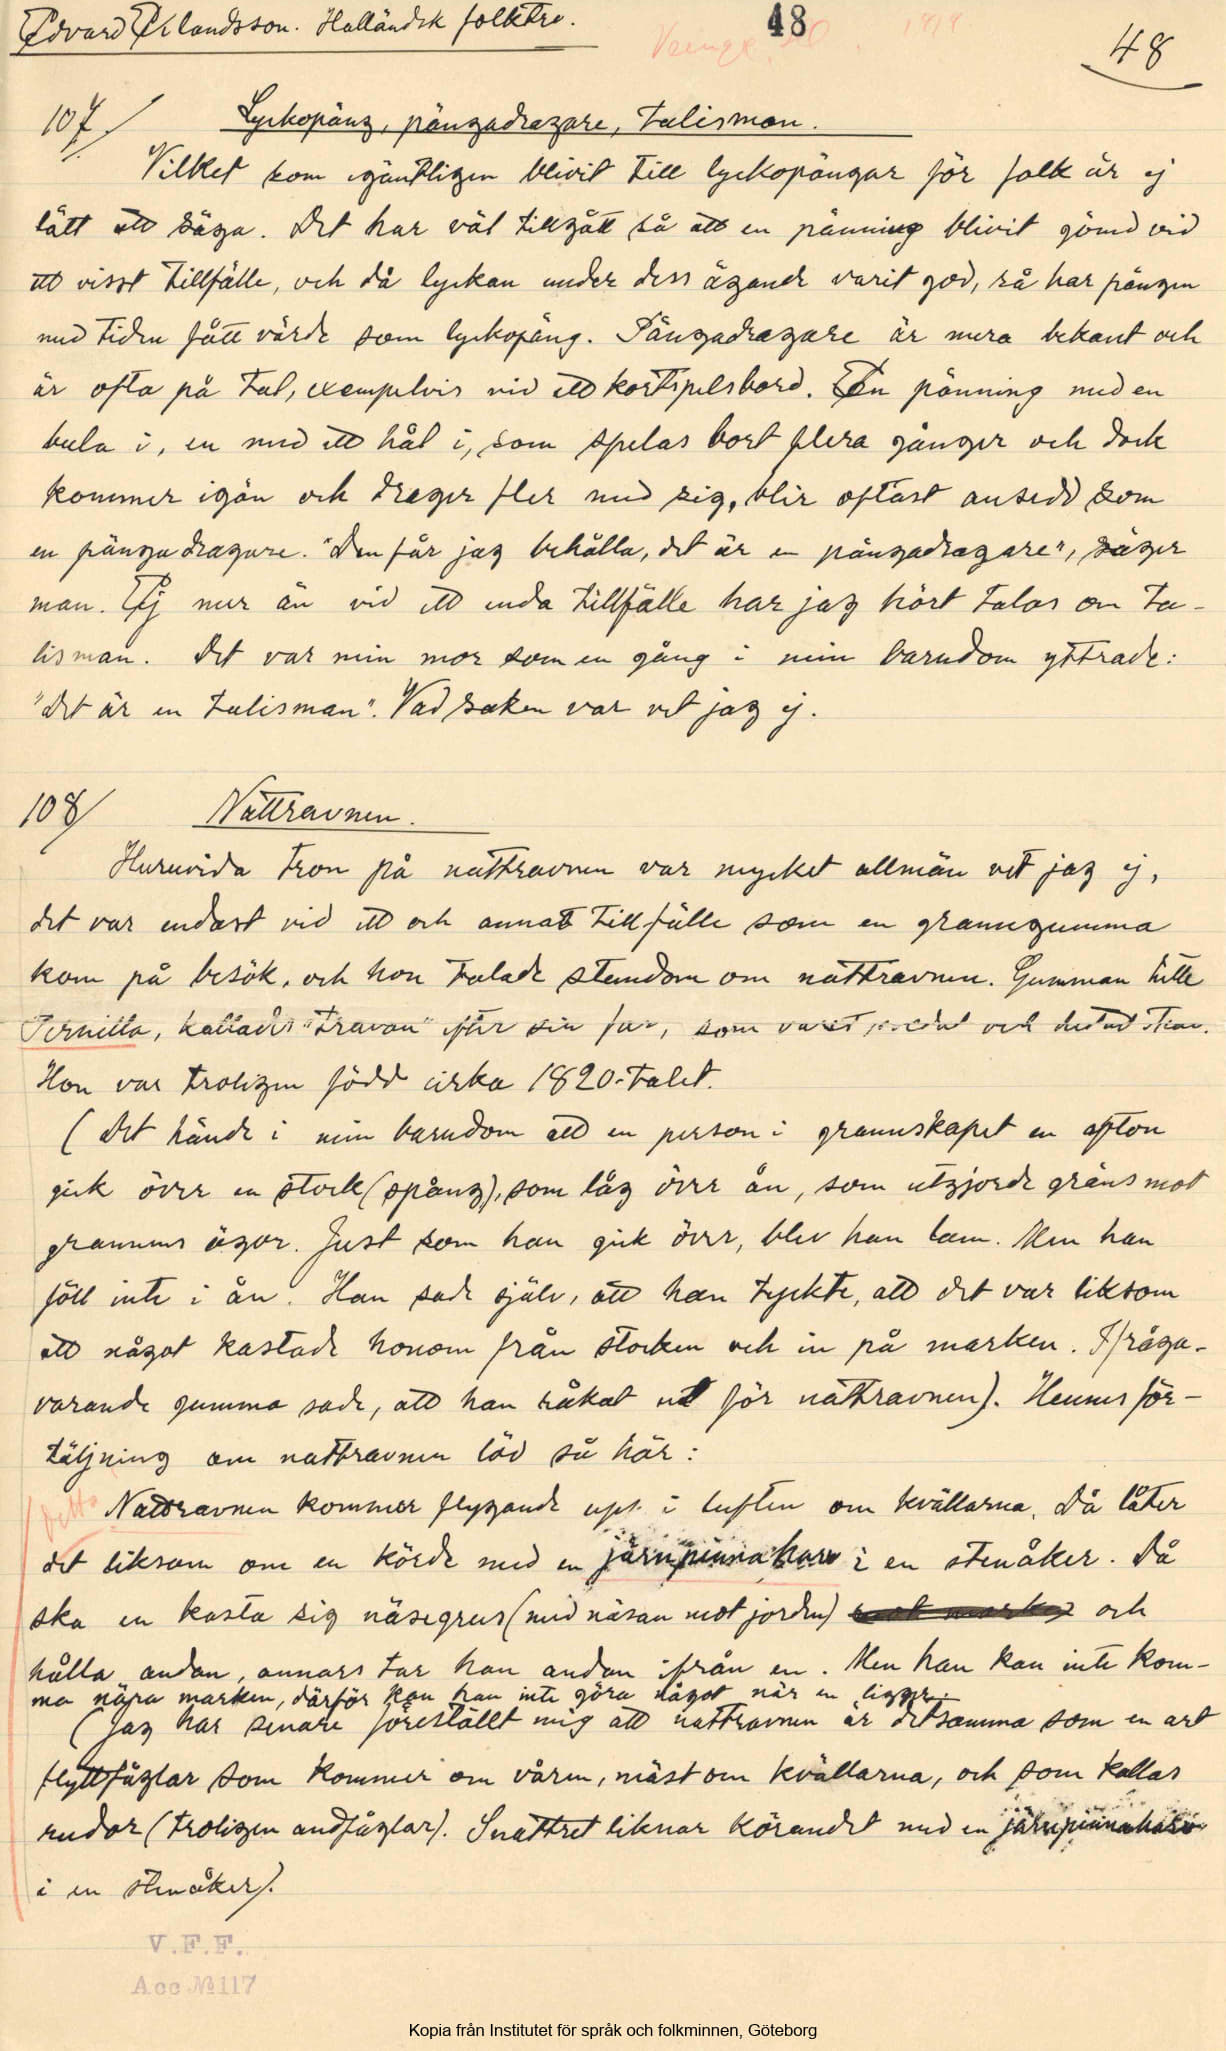 Edvard Erlandsson. Halländsk folktro.
48
48
107/ Lyckopäng, pängadragare, talisman.
Vilket som egäntligen blivit till lyckopängar för folk är ej
lätt att säga. Det har väl tillgått så att en pänning blivit gömd vid
ett visst tillfälle, och då lyckan under dess ägande varit god, så har pängen
med tiden fått värde som lyckopäng. Pängadragare är mera bekant och
är ofta på tal, exempelvis vid ett kortspelsbord. En pänning med en
bula i, en med ett hål i, som spelas bort flera gånger och dock
kommer igän och drager fler med sig, blir oftast ansedd som
en pängadragare. "Den får jag behålla, det är en pängadragare", säger
man. Ej mer än vid ett enda tillfälle har jag hört talas om ta-
lisman. Det var min mor som en gång i min barndom yttrade:
"det är en talisman". Vad saken var vet jag ej.
108/ Nattravnen.
Huruvida tron på nattravnen var mycket allmän vet jag ej,
det var endast vid ett och annat tillfälle som en granngumma
kom på besök, och hon talade stundom om nattravnen. Gumman hette
Pernilla, kallades "travan" efter sin far, som varit och
Hon var troligen född cirka 1820-talet.
(Det hände i min barndom att en person i grannskapet en afton
gick över en stock (spång), som låg över ån, som utgjorde gräns mot
grannens ägor. Just som han gick över, blev han lam. Men han
föll inte i ån. Han sade själv, att han tyckte, att det var liksom
att något kastade honom från stocken och in på marken. Ifråga-
varande gumma sade, att han råkat ut för nattravnen). Hennes för-
täljning om nattravnen löd så här:
Nattravnen kommer flygande upp i luften om kvällarna. Då låter
det liksom om en körde med en järnpinnaharv i en stenåker. Då
ska en kasta sig näsegrus (med näsan mot jorden) och
hålla andan, annars tar han andan ifrån en. Men han kan inte kom-
ma nära marken, därför kan han inte göra något när en ligger.
(Jag har senare föreställt mig att nattravnen är detsamma som en art
flyttfåglar som kommer om våren, mäst om kvällarna, och som kallas
rudor (troligen andfåglar). Snattret liknar körandet med en järnpinnaharv
i en stenåker).
V.F.F.
Acc № 117
Kopia från Institutet för språk och folkminnen, Göteborg